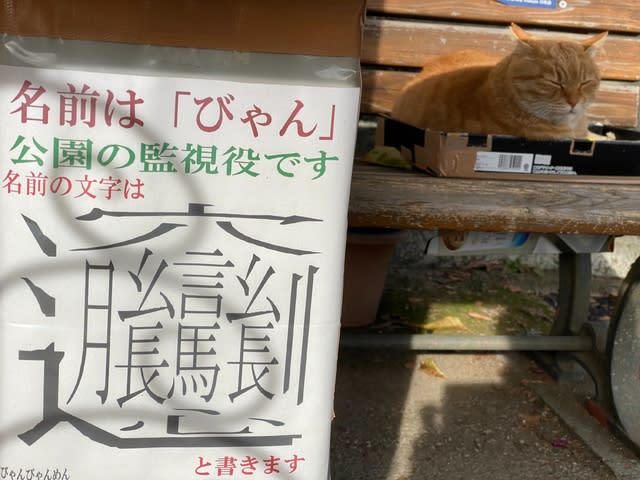 名前は「びゃん」
公園の監視役です
名前の文字は
𰻞
と書きます
びゃんびゃんめん